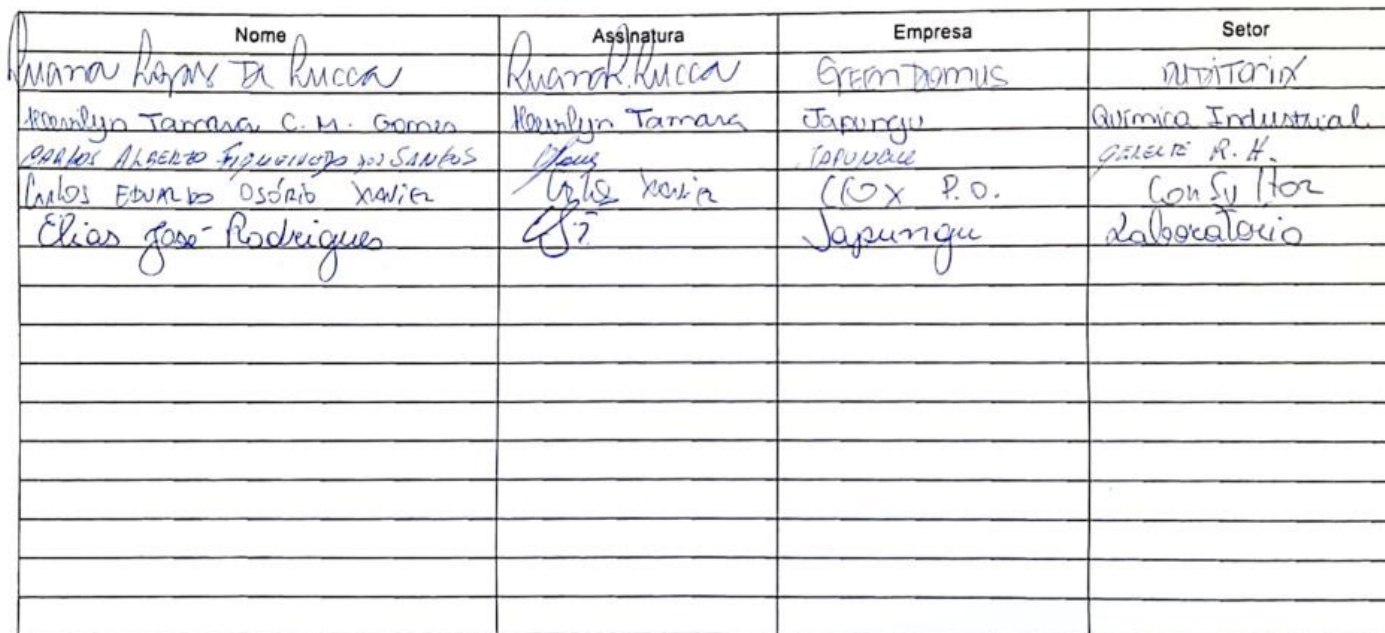 Nome Assinatura Empresa Setor
Luana Lopes De Lucca Luana L. Lucca GreenDomus Auditoria
Tamara C. M. Gomes Tamara Japungu Química Industrial
Carlos Alberto dos Santos Japungu Gerente R.H.
Carlos Eduardo Osório Xavier Carlos Xavier CCOX P.O. Consultor
Elias José Rodrigues Japungu Laboratorio